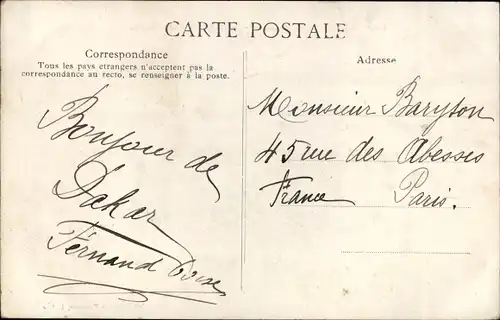 CARTE POSTALE
Correspondance
Tous les pays etrangers n'acceptent pas la
correspondance au recto, se renseigner à la poste.
Bonjour de
Dakar
Fernand
Adresse
Monsieur Baryton
45 rue des Abesses
France Paris.